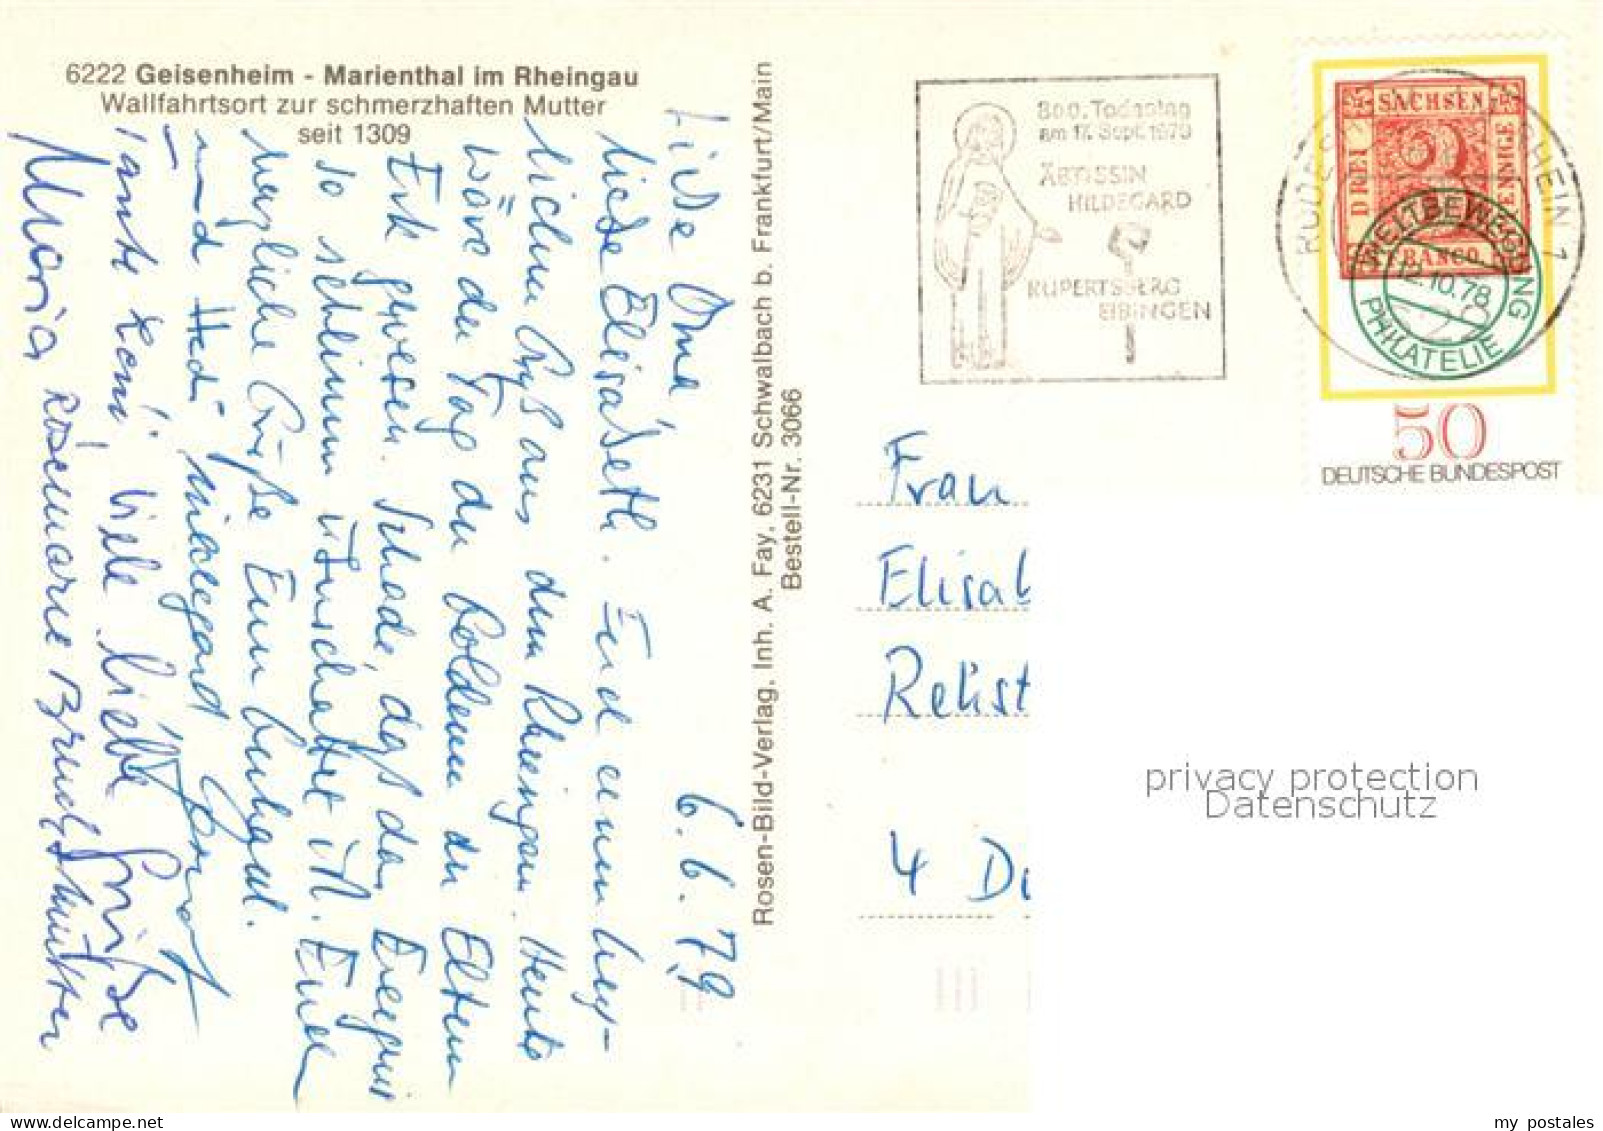 6222 Geisenheim - Marienthal im Rheingau
Wallfahrtsort zur schmerzhaften Mutter
seit 1309
6.6.79
Liebe Oma,
liebe Elisabeth. Euch einen herz-
lichen Gruß aus dem Rheingau. Heute
wäre der Tag der Goldenen der Eltern
gewesen. Schade, daß das Ereignis
so schlimm überschattet ist. Euch
herzliche Grüße Euer
und Hedi Hildegard
Tante Leni Viele liebe Grüße
Maria Rosemarie
Rosen-Bild-Verlag, Inh. A. Fay, 6231 Schwalbach b. Frankfurt/Main
Bestell-Nr. 3066
800. Todestag
am 17. Sept. 1979
ÄBTISSIN
HILDEGARD
RUPERTSBERG
EIBINGEN
SACHSEN
DREI
PFENNIGE
3
BANCO
WELTBEWEGUNG
12.10.78
PHILATELIE
50
DEUTSCHE BUNDESPOST
Frau
Elisab
4 Dü
privacy protection
Datenschutz
my postales